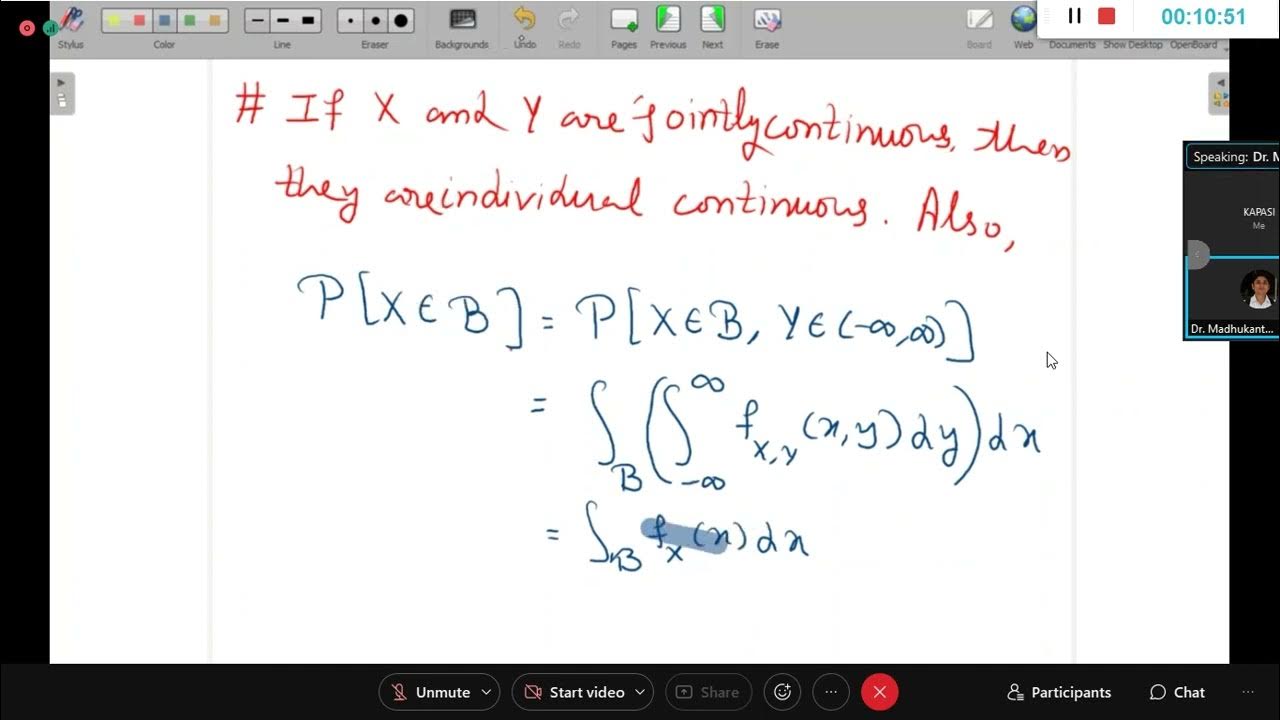 00:10:51
Stylus Color Line Eraser Backgrounds Undo Redo Pages Previous Next Erase Board Web Documents Show Desktop OpenBoard
# If X and Y are jointly continuous, then
they are individual continuous. Also,
P[X∈B] = P[X∈B, Y∈(-∞,∞)]
= ∫_B (∫_{-∞}^{∞} f_{X,Y}(x,y) dy) dx
= ∫_B f_X(x) dx
Speaking: Dr. M
KAPASI
Me
Dr. Madhukant...
Unmute Start video Share Participants Chat